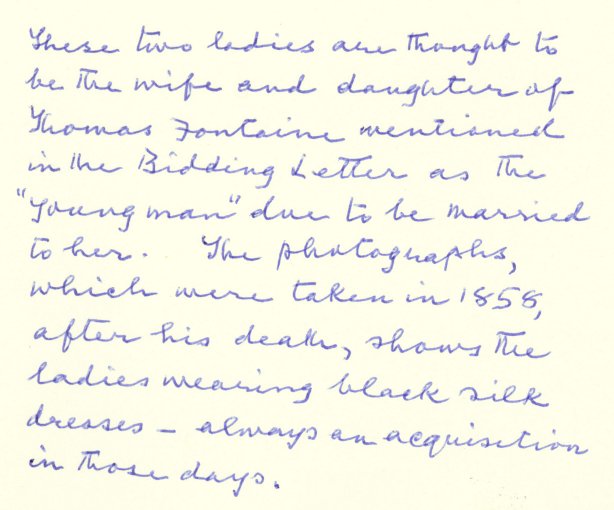 These two ladies are thought to
be the wife and daughter of
Thomas Fontaine mentioned
in the Bidding Letter as the
"young man" due to be married
to her. The photographs,
which were taken in 1858,
after his death, shows the
ladies wearing black silk
dresses – always an acquisition
in those days.